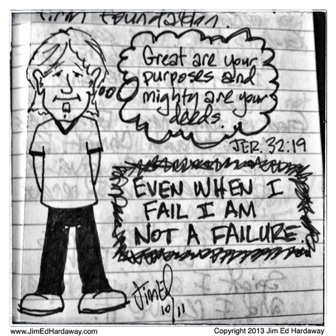 Firm Foundation.
Great are your
purposes and
mighty are your
deeds.
JER. 32:19
EVEN WHEN I
FAIL I AM
NOT A FAILURE.
JimEd
10/11
www.JimEdHardaway.com
Copyright 2013 Jim Ed Hardaway